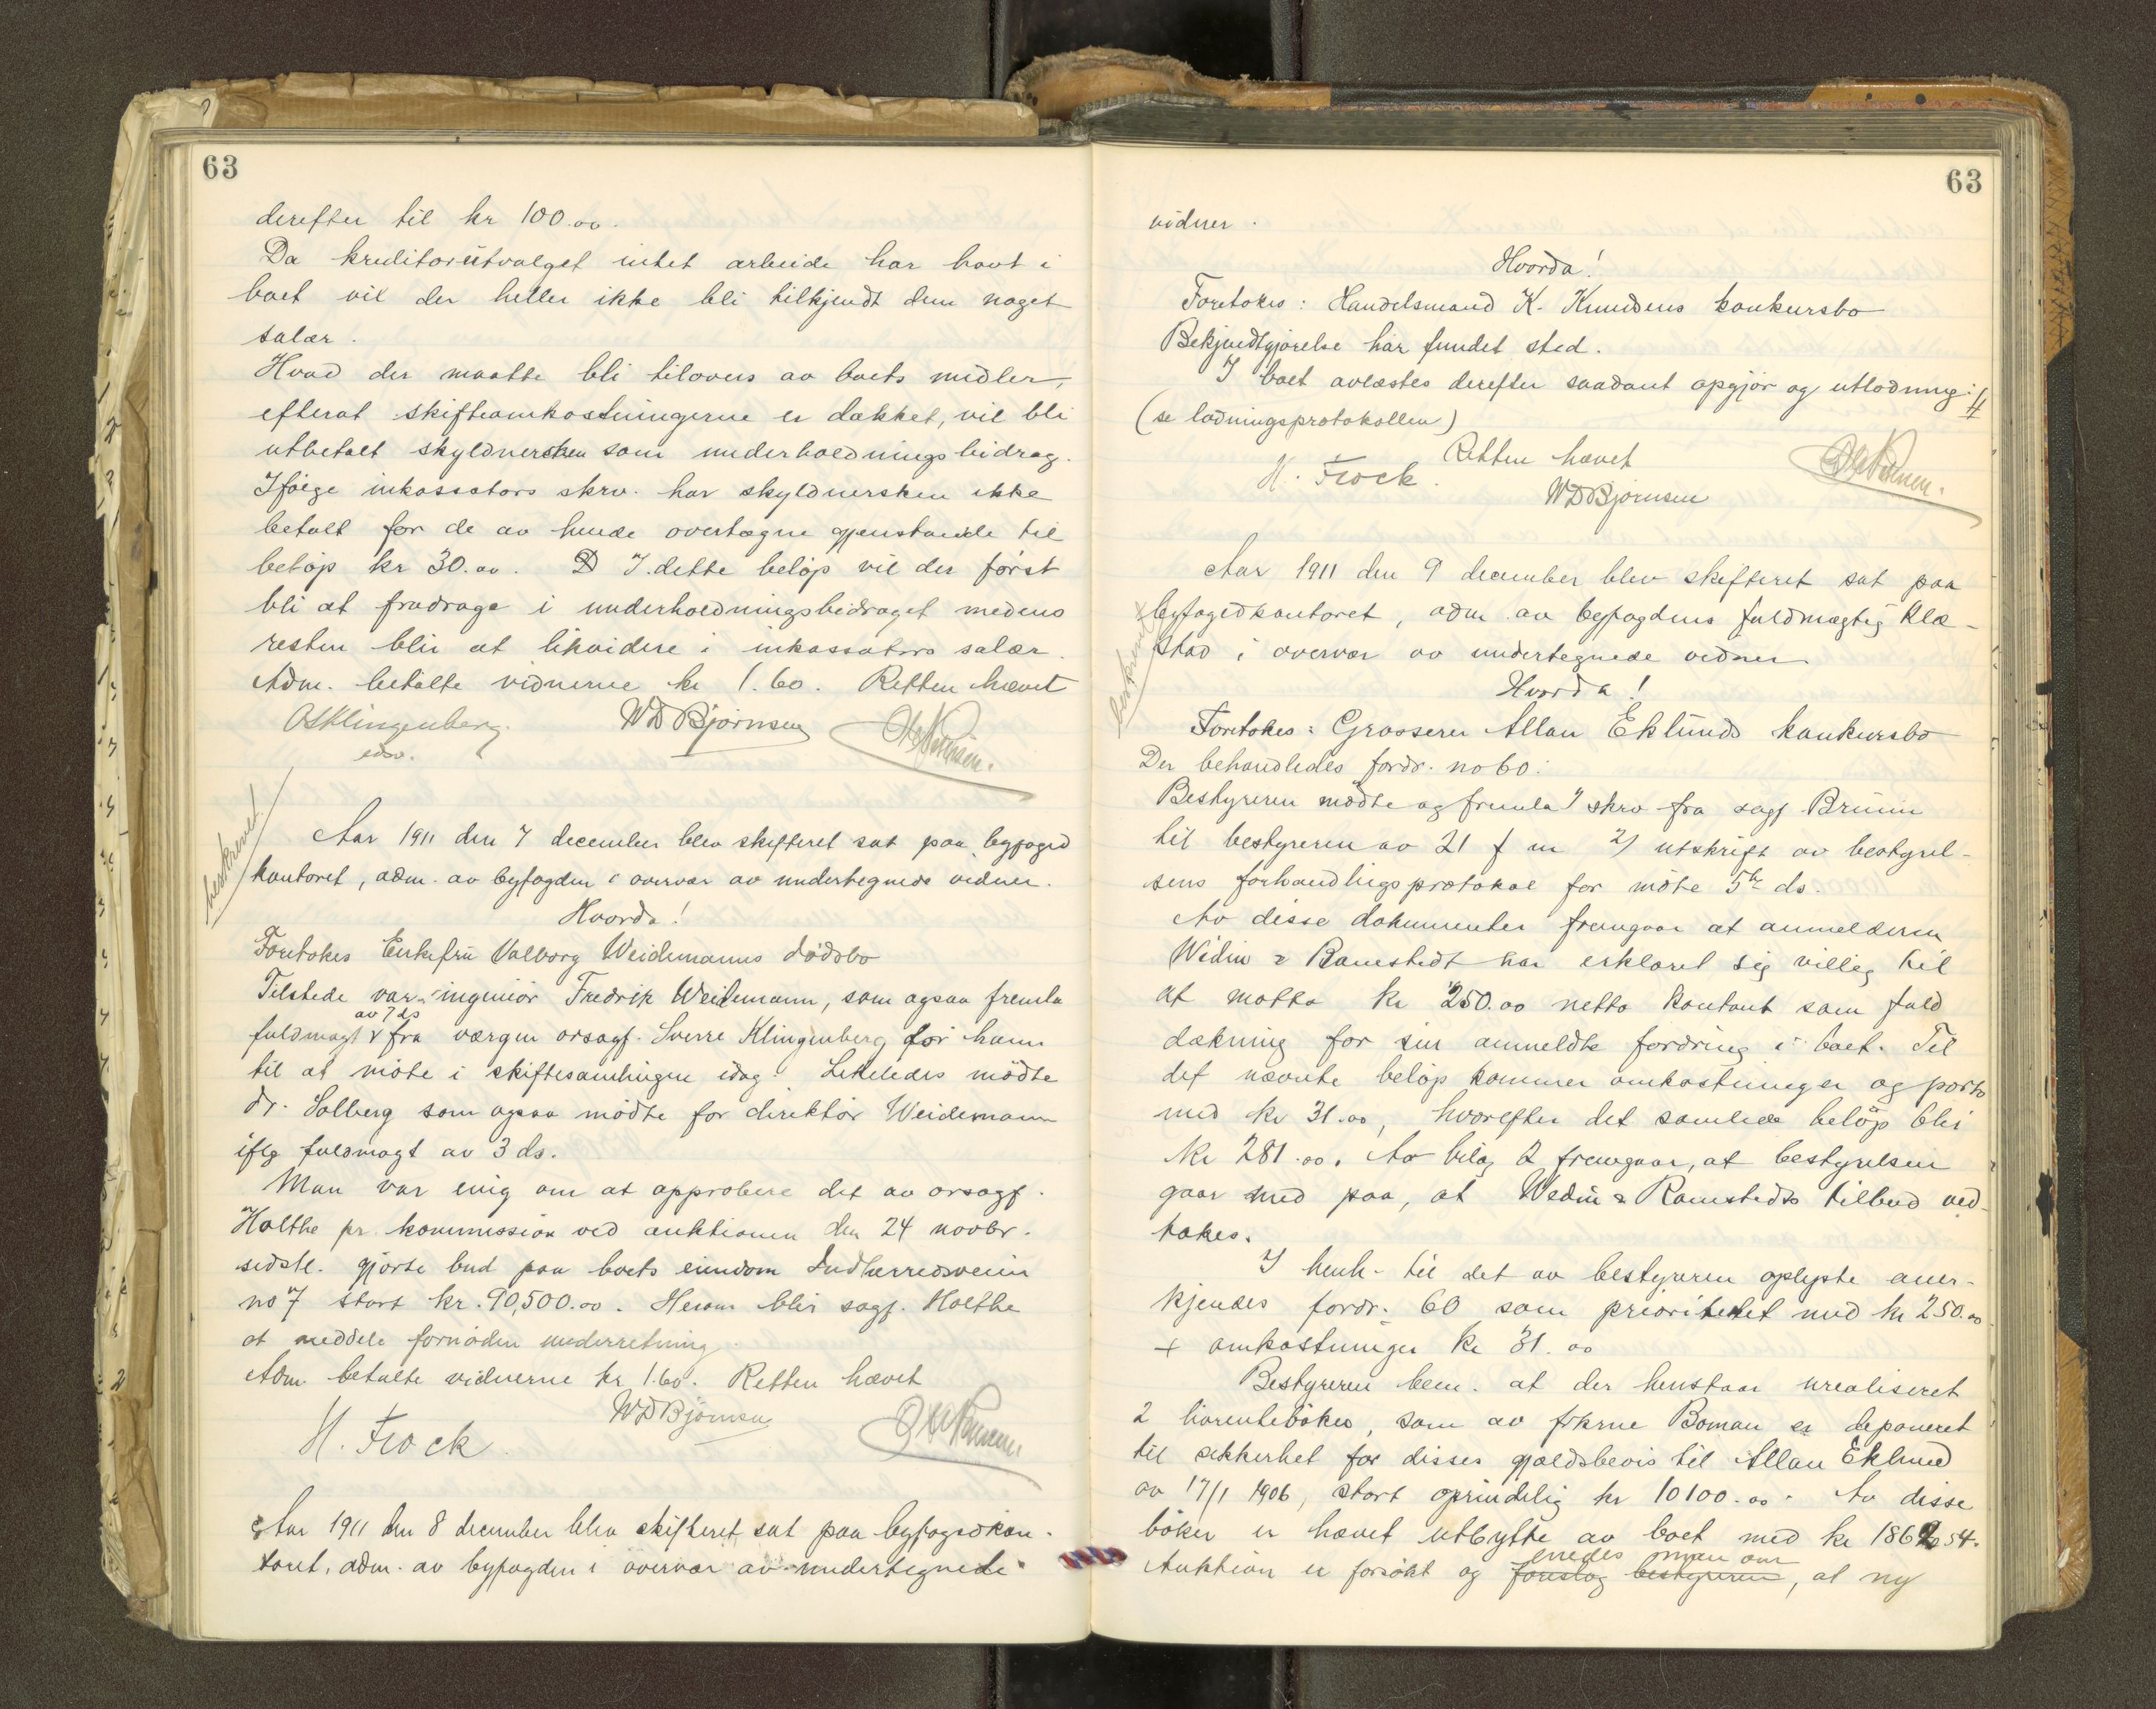 63
derefter til kr 100.00.
Da kreditorutvalget intet arbeide har havt i
boet vil der heller ikke bli tilkjendt dem noget
salær.
Hvad der maatte bli tilovers av boets midler,
efterat skifteomkostningerne er dækket, vil bli
utbetalt skyldnersken som underholdningsbidrag.
Ifølge inkassators skrv. har skyldnersken ikke
betalt for de av hende overtagne gjenstande til
beløp kr 30.00. I dette beløp vil der først
bli at fradrage i underholdningsbidraget medens
resten blir at likvidere i inkassators salær.
Adm. betalte vidnerne kr 1.60. Retten hævet
O.S.Klingenberg. WD Bjørnsen
edsv.
beskrevet
Aar 1911 den 7 december blev skifteret sat paa byfogd
kontoret, adm. av byfogden i overvær av undertegnede vidner.
Hvorda!
Foretokes Enkefru Valborg Weidemanns dødsbo
Tilstede var ingeniør Fredrik Weidemann, som ogsaa fremla
av 7 ds
fuldmagt fra værgen orsagf. Sverre Klingenberg for ham
til at møte i skiftesamlingen idag. Likeledes mødte
dr. Solberg som ogsaa mødte for direktør Weidemann
iflg fuldmagt av 3 ds.
Man var enig om at approbere det av orsagf.
Holthe pr. kommission ved auktionen den 24 novbr.
sidstl. gjorte bud paa boets eiendom Indherredsveien
no 7 stort kr. 90,500.00. Herom blir sagf. Holthe
at meddele fornøden underretning.
Adm. betalte vidnerne kr 1.60. Retten hævet
H. Frock. WD Bjørnsen
Aar 1911 den 8 december blev skifteret sat paa byfogdkon-
toret, adm. av byfogden i overvær av undertegnede
63
vidner.
Hvorda!
Foretokes: Handelsmand K. Knudsens konkursbo
Bekjendtgjørelse har fundet sted.
I boet avlæstes derefter saadant opgjør og utlodning:
(se lodningsprotokollen)
Retten hævet
H. Frock. WD Bjørnsen
Aar 1911 den 9 december blev skifteret sat paa
byfogedkontoret, adm. av byfogdens fuldmægtig Klæ-
stad i overvær av undertegnede vidner.
beskrevet
Hvorda!
Foretokes: Grosserer Allan Eklunds konkursbo
Der behandledes fordr. no 60:
Bestyreren mødte og fremla 1) skrv fra sagf Bruun
til bestyreren av 21 f m 2) utskrift av bestyrel-
sens forhandligsprotokol for møte 5te ds.
Av disse dokumenter fremgaar at anmelderen
Wedin & Ramstedt har erklæret sig villig til
at motta kr 250.00 netto kontant som fuld
dækning for sin anmeldte fordring i boet. Til
det nævnte beløp kommer omkostninger og porto
med kr 31.00, hvorefter det samlede beløp blir
kr 281.00. Av bilag 2 fremgaar, at bestyrelsen
gaar med paa, at Wedin & Ramstedts tilbud ved-
tokes.
I henh. til det av bestyreren oplyste aner-
kjendes fordr. 60 som prioritetet med kr 250.00
+ omkostninger kr 31.00
Bestyreren bem. at der henstaar urealiseret
2 livrentebøker, som av frkrne Boman er deponeret
til sikkerhet for disses gjældsbevis til Allan Eklund
av 17/1 1906, stort oprindelig kr 10100.00. Av disse
bøker er hævet utbytte av boet med kr 1862.54.
enedes man om
Auktion er forsøkt og foreslog bestyreren, at ny